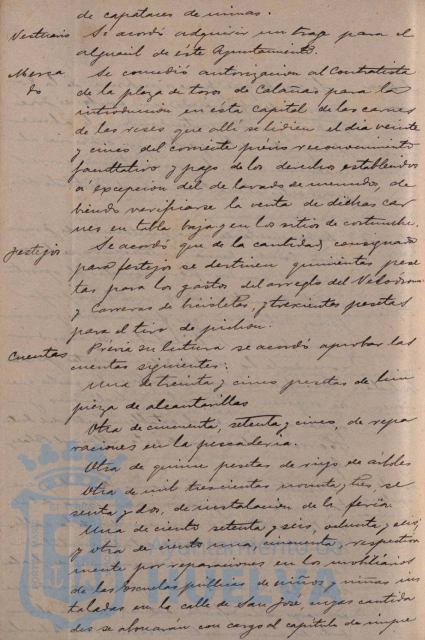 de capataces de minas.
Vestuario Se acordó adquirir un traje para el
alguacil de éste Ayuntamiento.
Merca Se concedió autorizacion al Contratista
do de la plaza de toros de Calañas para la
introduccion en ésta capital de las carnes
de las reses que allí se lidien el dia veinte
y cinco del corriente prévio reconocimiento
facultativo y pago de los derechos establecidos
á excepcion del de lavado de menudos, de
biendo verificarse la venta de dichas car
nes en tabla baja y en los sitios de costumbre.
Festejos Se acordó que de la cantidad consignada
para festejos se destinen quinientas pese
tas para los gastos del arreglo del Velódromo
y carreras de bicicletas, y trescientas pesetas
para el tiro de pichon.
Cuentas Prévia su lectura se acordó aprobar las
cuentas siguientes:
Una de treinta y cinco pesetas de lim
pieza de alcantarillas
Otra de cincuenta, setenta y cinco, de repa
raciones en la pescadería.
Otra de quince pesetas de riego de árboles
Otra de mil trescientas noventa y tres, se
senta y dos, de instalacion de la feria.
Una de ciento setenta y seis, ochenta y seis,
y otra de ciento una, cincuenta, respectiva
mente por reparaciones en los mobiliarios
de las escuelas públicas de niños y niñas ins
taladas en la calle de San José, cuyas cantida
des se abonarán con cargo al capitulo de impre
Ayuntamiento de
HUELVA